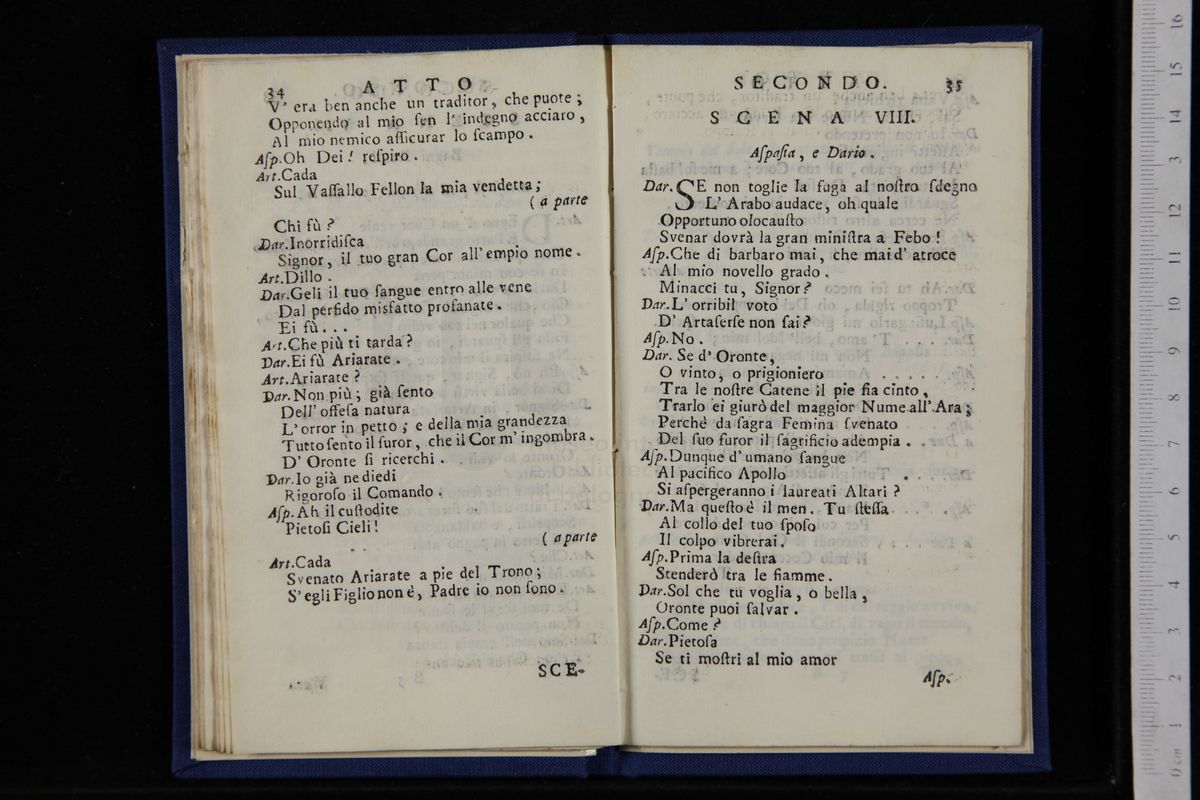 34 ATTO
V' era ben anche un traditor, che puote;
Opponendo al mio ſen l' indegno acciaro,
Al mio nemico aſſicurar lo ſcampo.
Aſp.Oh Dei! reſpiro.
Art.Cada
Sul Vaſſallo Fellon la mia vendetta;
( a parte
Chi fù?
Dar.Inorridiſca
Signor, il tuo gran Cor all' empio nome.
Art.Dillo.
Dar.Geli il tuo ſangue entro alle vene
Dal perfido misfatto profanate.
Ei fù...
Art.Che più ti tarda?
Dar.Ei fù Ariarate.
Art.Ariarate?
Dar.Non più; già ſento
Dell' offeſa natura
L'orror in petto; e della mia grandezza
Tutto ſento il furor, che il Cor m' ingombra.
D' Oronte ſi ricerchi.
Dar.Io già ne diedi
Rigoroſo il Comando.
Aſp.Ah il cuſtodite
Pietoſi Cieli!
( a parte
Art.Cada
Svenato Ariarate a pie del Trono;
S' egli Figlio non è, Padre io non ſono.
SCE-
SECONDO. 35
SCENA VIII.
Aſpaſia, e Dario.
Dar.SE non toglie la fuga al noſtro ſdegno
L' Arabo audace, oh quale
Opportuno olocauſto
Svenar dovrà la gran miniſtra a Febo!
Aſp.Che di barbaro mai, che mai d' atroce
Al mio novello grado.
Minacci tu, Signor?
Dar.L' orribil voto
D' Artaſerſe non ſai?
Aſp.No.
Dar. Se d' Oronte,
O vinto, o prigioniero
Tra le noſtre Catene il pie fia cinto,
Trarlo ei giurò del maggior Nume all' Ara;
Perchè da ſagra Femina ſvenato
Del ſuo furor il ſagrificio adempia.
Aſp.Dunque d' umano ſangue
Al pacifico Apollo
Si aſpergeranno i laureati Altari?
Dar.Ma queſto è il men. Tu ſteſſa
Al collo del tuo ſpoſo
Il colpo vibrerai.
Aſp.Prima la deſtra
Stenderò tra le fiamme.
Dar.Sol che tu voglia, o bella,
Oronte puoi ſalvar.
Aſp.Come?
Dar.Pietoſa
Se ti moſtri al mio amor
Aſp.
0 cm 1 2 3 4 5 6 7 8 9 10 11 12 13 14 15 16